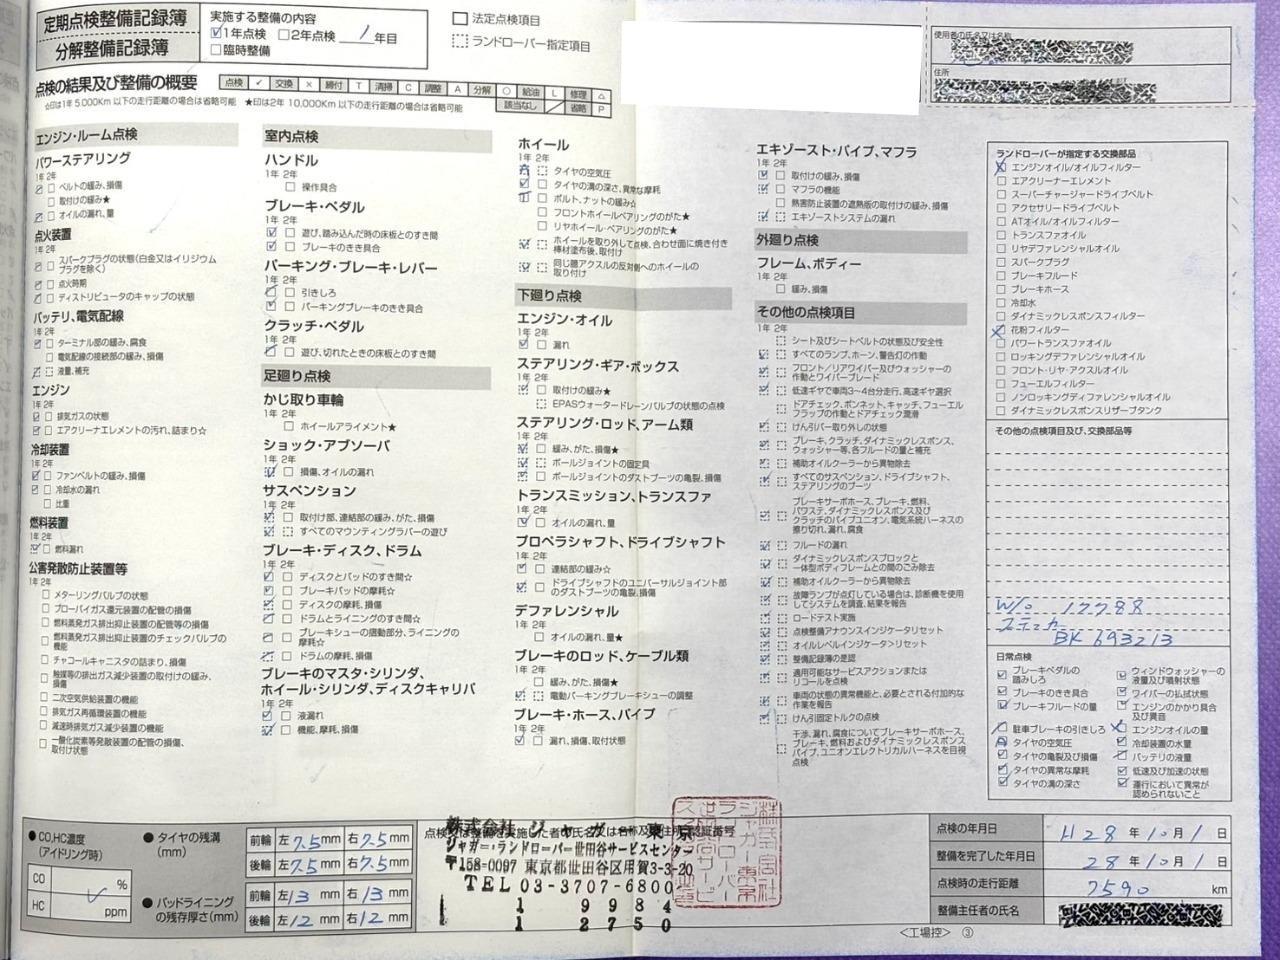 定期点検整備記録簿
分解整備記録簿
実施する整備の内容
1年点検 2年点検 1年目
臨時整備
法定点検項目
ランドローバー指定項目
使用者の氏名又は名称
住所
点検の結果及び整備の概要
点検 ✓ 交換 × 締付 T 清掃 C 調整 A 分解 ○ 給油 L 修理 △
該当なし / 省略 P
☆印は1年 5,000Km 以下の走行距離の場合は省略可能 ★印は2年 10,000Km 以下の走行距離の場合は省略可能
エンジン・ルーム点検
パワーステアリング
1年 2年
ベルトの緩み、損傷
取付けの緩み★
オイルの漏れ、量
点火装置
1年 2年
スパークプラグの状態(白金又はイリジウム
プラグを除く)
点火時期
ディストリビュータのキャップの状態
バッテリ、電気配線
1年 2年
ターミナル部の緩み、腐食
電気配線の接続部の緩み、損傷
液量、補充
エンジン
1年 2年
排気ガスの状態
エアクリーナエレメントの汚れ、詰まり☆
冷却装置
1年 2年
ファンベルトの緩み、損傷
冷却水の漏れ
比重
燃料装置
1年 2年
燃料漏れ
公害発散防止装置等
1年 2年
メターリングバルブの状態
ブローバイガス還元装置の配管の損傷
燃料蒸発ガス排出抑止装置の配管等の損傷
燃料蒸発ガス排出抑止装置のチェックバルブの
機能
チャコールキャニスタの詰まり、損傷
触媒等の排出ガス減少装置の取付けの緩み、
損傷
二次空気供給装置の機能
排気ガス再循環装置の機能
減速時排気ガス減少装置の機能
一酸化炭素等発散装置の配管の損傷、
取付け状態
室内点検
ハンドル
1年 2年
操作具合
ブレーキ・ペダル
1年 2年
遊び、踏み込んだ時の床板とのすき間
ブレーキのきき具合
パーキング・ブレーキ・レバー
1年 2年
引きしろ
パーキングブレーキのきき具合
クラッチ・ペダル
1年 2年
遊び、切れたときの床板とのすき間
足廻り点検
かじ取り車輪
1年 2年
ホイールアライメント★
ショック・アブソーバ
1年 2年
損傷、オイルの漏れ
サスペンション
1年 2年
取付け部、連結部の緩み、がた、損傷
すべてのマウンティングラバーの遊び
ブレーキ・ディスク、ドラム
1年 2年
ディスクとパッドのすき間☆
ブレーキパッドの摩耗☆
ディスクの摩耗、損傷
ドラムとライニングのすき間☆
ブレーキシューの摺動部分、ライニングの
摩耗☆
ドラムの摩耗、損傷
ブレーキのマスタ・シリンダ、
ホイール・シリンダ、ディスクキャリパ
1年 2年
液漏れ
機能、摩耗、損傷
ホイール
1年 2年
タイヤの空気圧
タイヤの溝の深さ、異常な摩耗
ボルト、ナットの緩み☆
フロントホイールベアリングのがた★
リヤホイール・ベアリングのがた★
ホイールを取り外して点検、合わせ面に焼き付き
棒材塗布後、取付け
同じ側アクスルの反対側へのホイールの
取り付け
下廻り点検
エンジン・オイル
1年 2年
漏れ
ステアリング・ギア・ボックス
1年 2年
取付けの緩み★
EPASウォータードレーンバルブの状態の点検
ステアリング・ロッド、アーム類
1年 2年
緩み、がた、損傷★
ボールジョイントの固定具
ボールジョイントのダストブーツの亀裂、損傷
トランスミッション、トランスファ
1年 2年
オイルの漏れ、量
プロペラシャフト、ドライブシャフト
1年 2年
連結部の緩み☆
ドライブシャフトのユニバーサルジョイント部
のダストブーツの亀裂、損傷
デファレンシャル
1年 2年
オイルの漏れ、量★
ブレーキのロッド、ケーブル類
1年 2年
緩み、がた、損傷★
電動パーキングブレーキシューの調整
ブレーキ・ホース、パイプ
1年 2年
漏れ、損傷、取付状態
エキゾースト・パイプ、マフラ
1年 2年
取付けの緩み、損傷
マフラの機能
熱害防止装置の遮熱版の取付けの緩み、損傷
エキゾーストシステムの漏れ
外廻り点検
フレーム、ボディー
1年 2年
緩み、損傷
その他の点検項目
1年 2年
シート及びシートベルトの状態及び安全性
すべてのランプ、ホーン、警告灯の作動
フロント/リアワイパー及びウォッシャーの
作動とワイパーブレード
低速ギヤで車両3〜4台分走行、高速ギヤ選択
ドアチェック、ボンネット、キャッチ、フューエル
フラップの作動とドアチェック潤滑
けん引バー取り外しの状態
ブレーキ、クラッチ、ダイナミックレスポンス、
ウォッシャー等、各フルードの量と補充
補助オイルクーラーから異物除去
すべてのサスペンション、ドライブシャフト、
ステアリングのブーツ
ブレーキサーボホース、ブレーキ、燃料、
パワステ、ダイナミックレスポンス及び
クラッチのパイプユニオン、電気系統ハーネスの
擦り切れ、漏れ、腐食
フルードの漏れ
ダイナミックレスポンスブロックと
一体型ボディフレームとの間のごみ除去
補助オイルクーラーから異物除去
故障ランプが点灯している場合は、診断機を使用
してシステムを調査、結果を報告
ロードテスト実施
点検整備アナウンスインジケータリセット
オイルレベルインジケータ>リセット
整備記録簿の是認
適用可能なサービスアクションまたは
リコールを点検
車両の状態の異常機能と、必要とされる付加的な
作業を報告
けん引固定トルクの点検
干渉、漏れ、腐食についてブレーキサーボホース、
ブレーキ、燃料およびダイナミックレスポンス
パイプ、ユニオンエレクトリカルハーネスを目視
点検
ランドローバーが指定する交換部品
エンジンオイル/オイルフィルター
エアクリーナーエレメント
スーパーチャージャードライブベルト
アクセサリードライブベルト
ATオイル/オイルフィルター
トランスファオイル
リヤデファレンシャルオイル
スパークプラグ
ブレーキフルード
ブレーキホース
冷却水
ダイナミックレスポンスフィルター
花粉フィルター
パワートランスファオイル
ロッキングデファレンシャルオイル
フロント・リヤ・アクスルオイル
フューエルフィルター
ノンロッキングデファレンシャルオイル
ダイナミックレスポンスリザーブタンク
その他の点検項目及び、交換部品等
W/O 17788
ステッカー
BK 693213
日常点検
ブレーキペダルの
踏みしろ
ブレーキのきき具合
ブレーキフルードの量
駐車ブレーキの引きしろ
タイヤの空気圧
タイヤの亀裂及び損傷
タイヤの異常な摩耗
タイヤの溝の深さ
ウィンドウォッシャーの
液量及び噴射状態
ワイパーの払拭状態
エンジンのかかり具合
及び異音
エンジンオイルの量
冷却装置の水量
バッテリの液量
低速及び加速の状態
運行において異常が
認められないこと
●CO,HC濃度
(アイドリング時)
CO %
HC ppm
●タイヤの残溝
(mm)
前輪 左7.5mm 右7.5mm
後輪 左7.5mm 右7.5mm
●パッドライニング
の残存厚さ(mm)
前輪 左13mm 右13mm
後輪 左12mm 右12mm
点検又は整備を実施した者の氏名又は名称及び住所認証番号
株式会社 ジャガー東京
ジャガー・ランドローバー世田谷サービスセンター
〒158-0097 東京都世田谷区用賀3-3-20
TEL 03-3707-6800
1 9984
1 2750
点検の年月日 H28年10月1日
整備を完了した年月日 28年10月1日
点検時の走行距離 7590 km
整備主任者の氏名
<工場控> ③